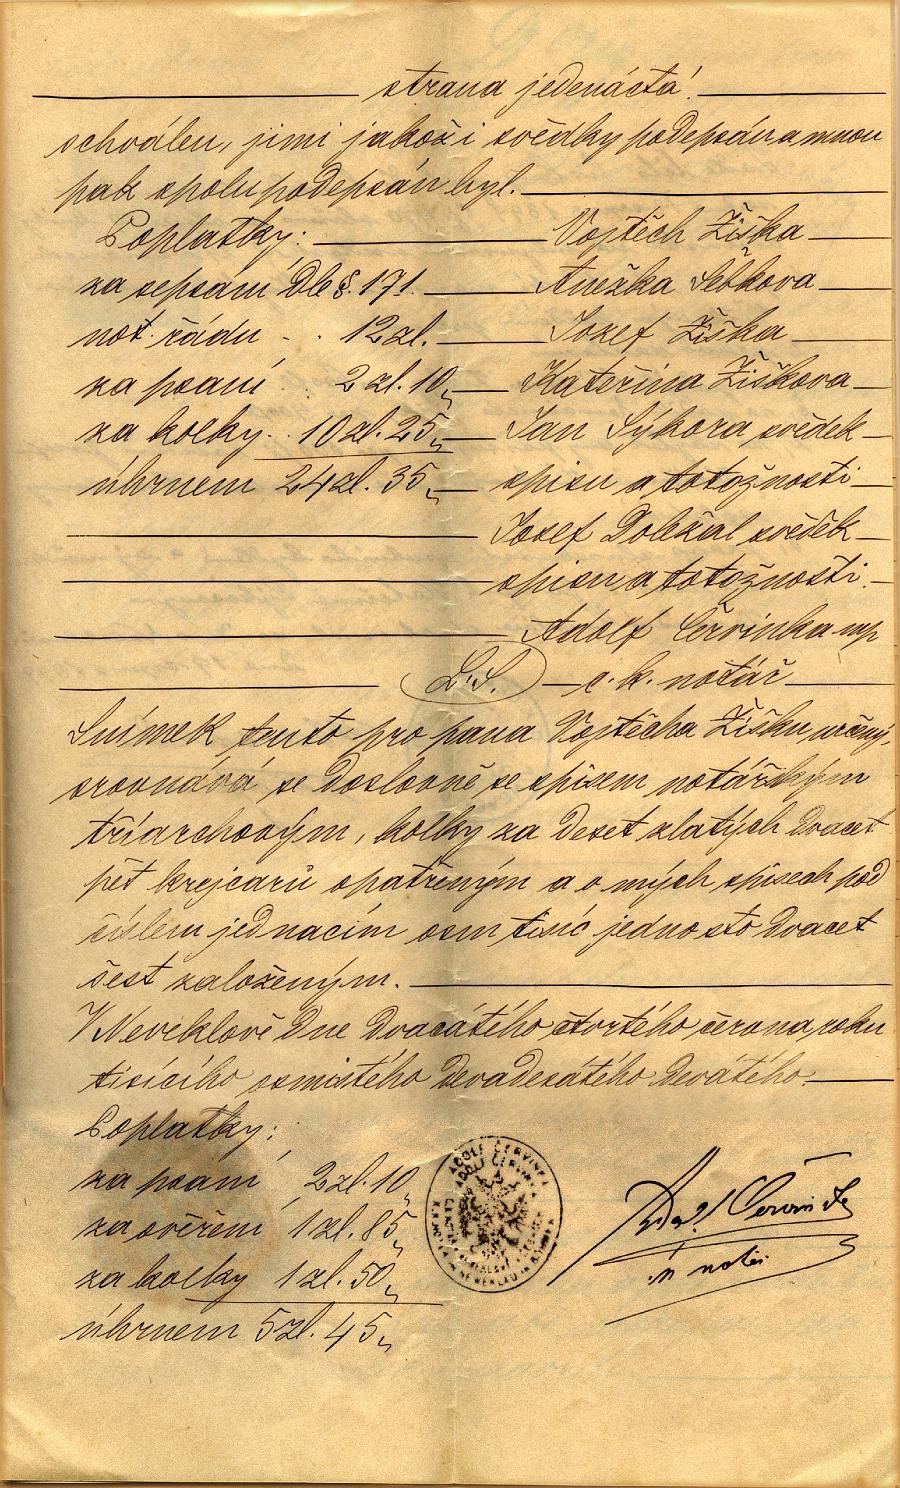 strana jedenáctá!
schválen, jimi jakož i svědky podepsán a mnou
pak spolupodepsán byl.
Poplatky: Vojtěch Žiška
za sepsání dle §. 171. Anežka
not. řádu . . 12 zl. Josef Žiška
za psaní . 2 zl. 10 „ Kateřina Žiškova
za kolky . . 10 zl. 25 „ Jan Sýkora svědek
úhrnem 24 zl. 35 „ spisu a totožnosti
Josef Doležal svědek
spisu a totožnosti.
Adolf Červinka mp
L.S. c. k. notář
Snímek tento pro pana Vojtěcha Žišku určený,
srovnává se doslovně se spisem notářským
tříarchovým, kolky za deset zlatých dvacet
pět krejcarů opatřeným a o mých spisech pod
číslem jednacím osm tisíc jedno sto dvacet
šest založeným.
V Neveklově dne dvacátého čtvrtého června roku
tisícího osmistého devadesátého devátého.
Poplatky:
za psaní 2 zl. 10 „
za ověření 1 zl. 85 „
za kolky 1 zl. 50 „
úhrnem 5 zl. 45 „
ADOLF ČERVINKA
ADOLF ČERVINKA
Adolf Červinka
notář